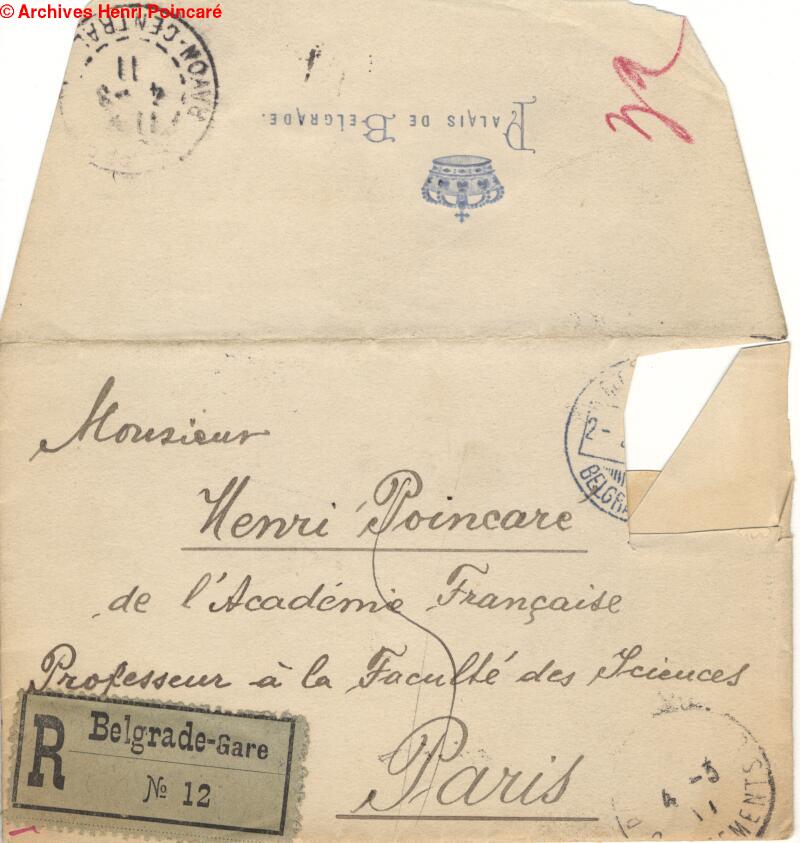 © Archives Henri Poincaré
AVON-CENTRAL
11
4 -3
11
PALAIS DE BELGRADE.
Monsieur
Henri Poincare
de l'Académie Française
Professeur à la Faculté des Sciences
Paris
2-
BELGRA
R
Belgrade-Gare
№ 12
4 -3
11
EMENTS